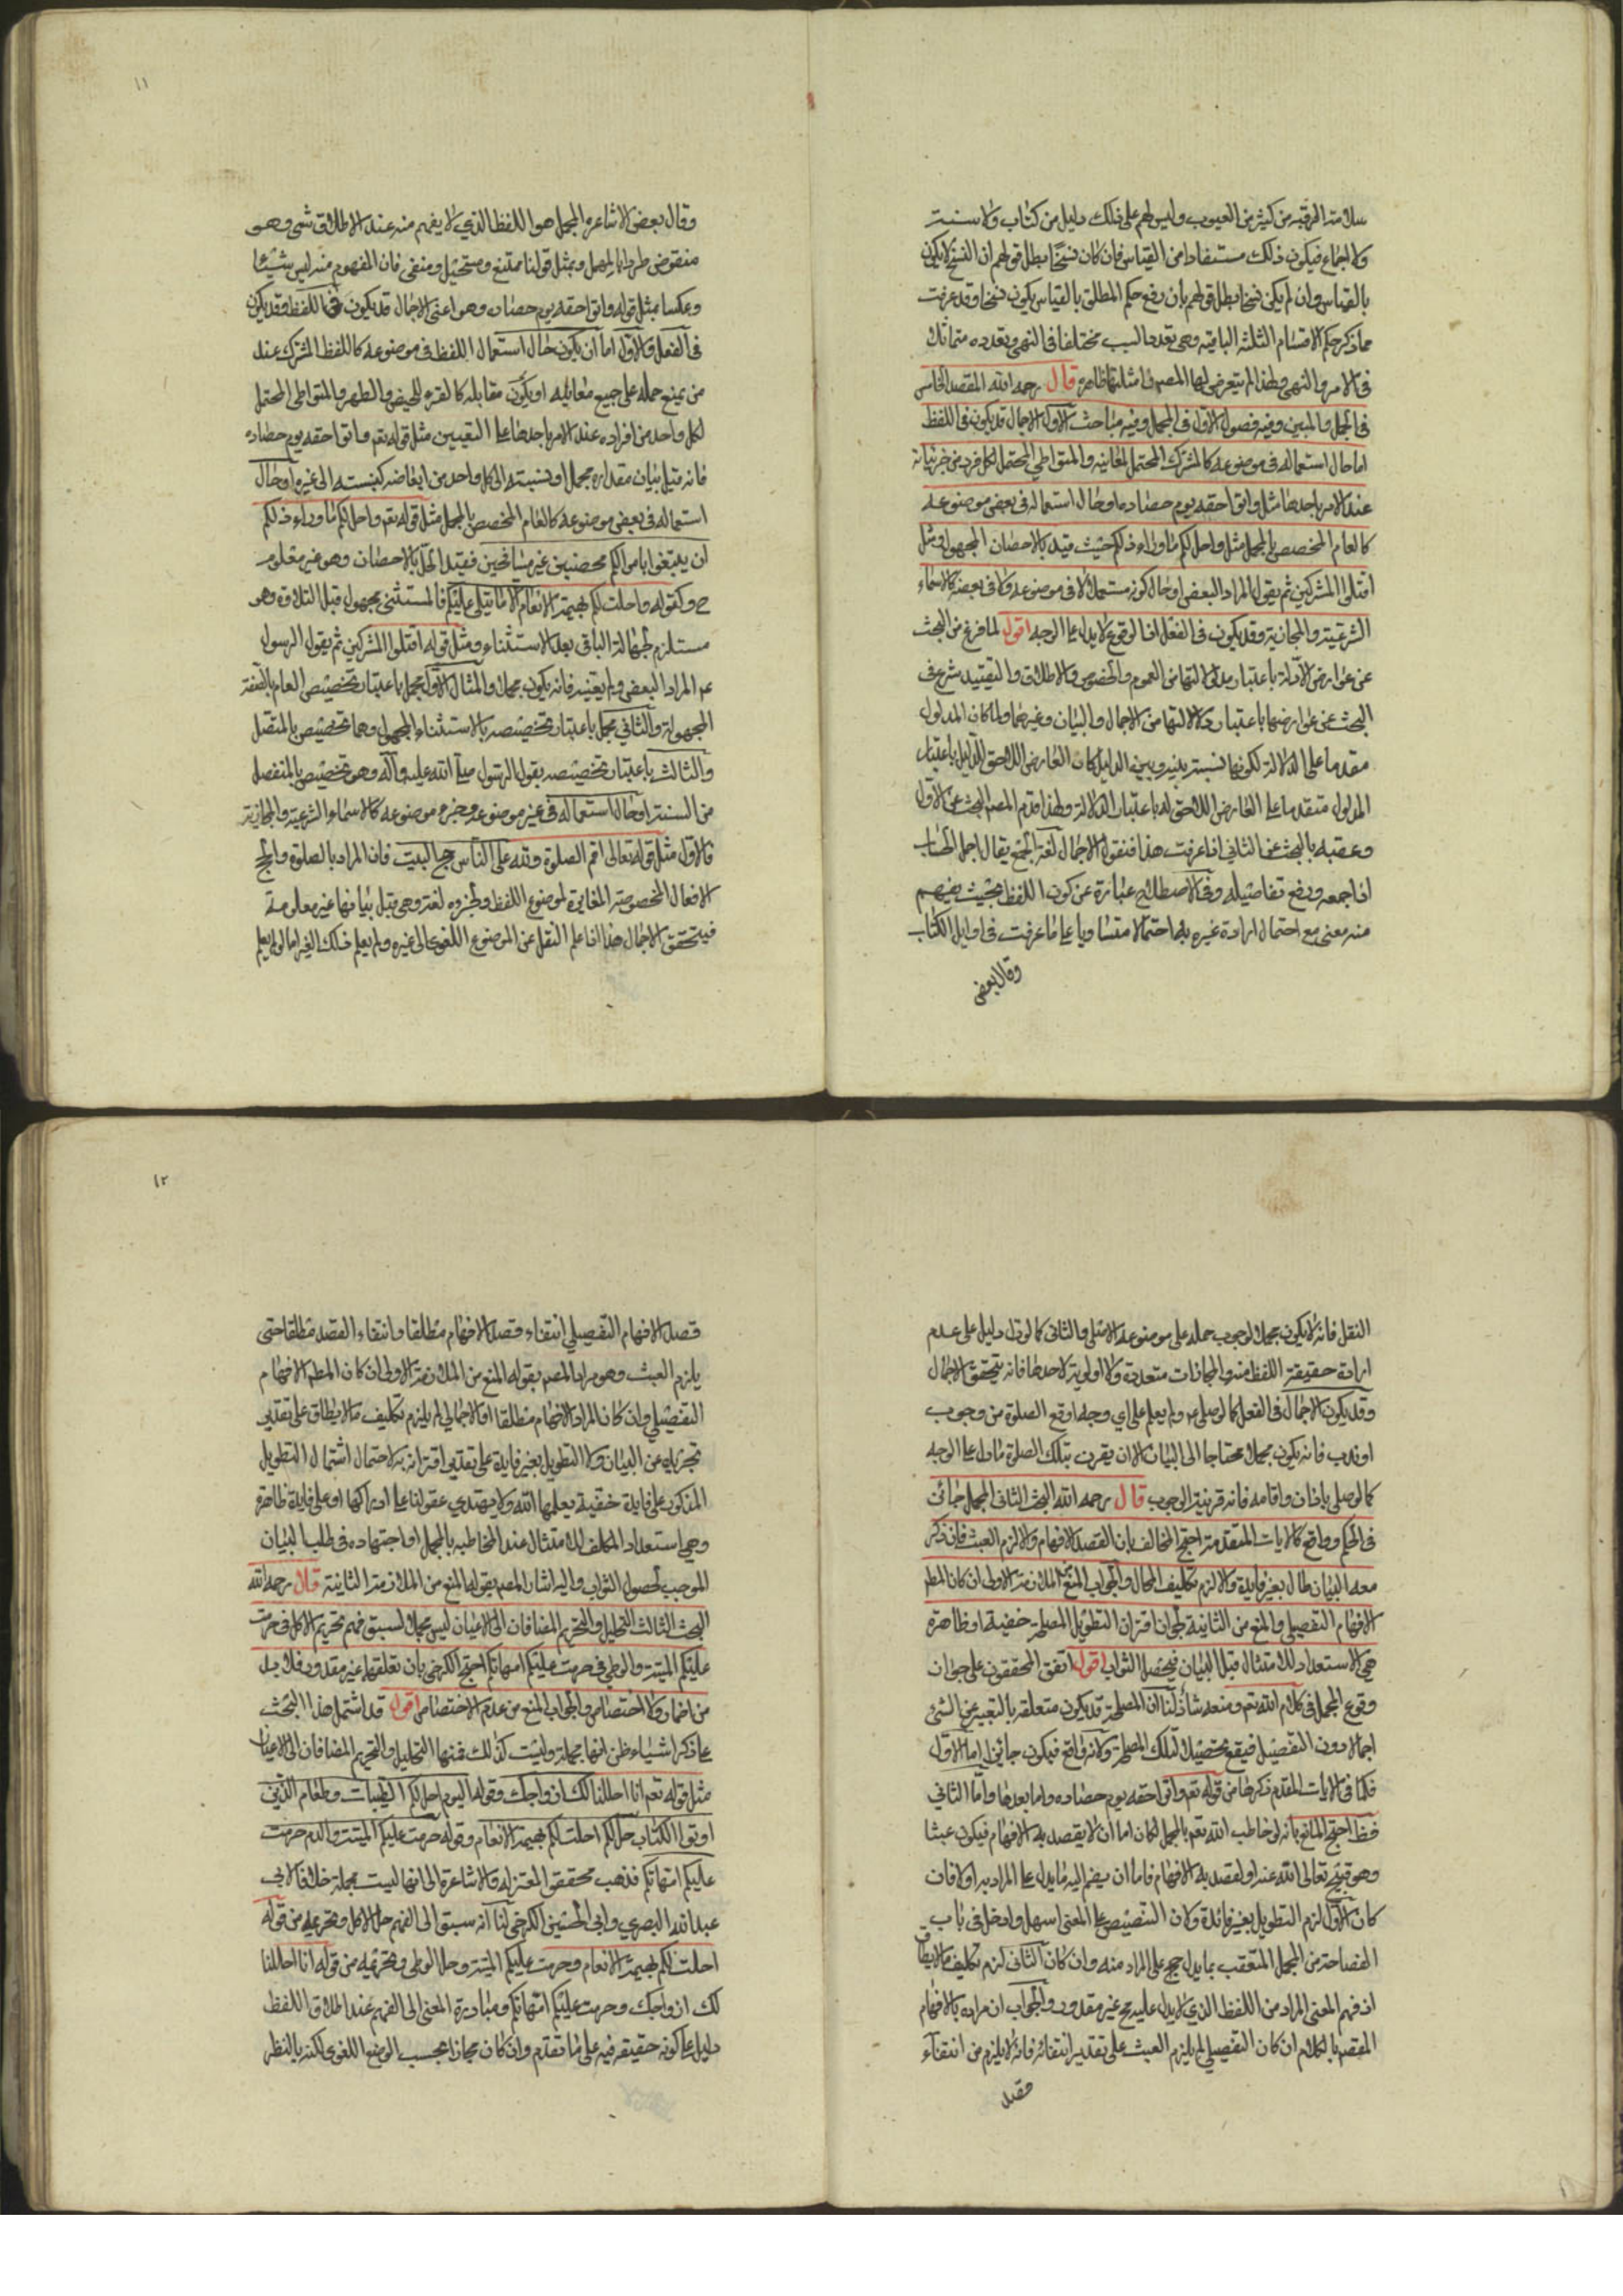 سلامة الرقبة من كثير من العيوب وليس لهم على ذلك دليل من كتاب ولا سنة
ولا اجماع فيكون ذلك مستفادا من القياس فان كان نسخا بطل قولهم ان النسخ لا يكون
بالقياس وان لم يكن نسخا بطل قولهم بان رفع حكم المطلق بالقياس يكون نسخا وقد عرفت
مما ذكر حكم الاقسام الثلثة الباقية وهى تعدد السبب مختلفا فى النهى وتعدده متماثلا
فى الامر والنهى ولهذا لم يتعرض لها المصـ وامثلتها ظاهرة قال رحمه الله المقصد الخامس
فى المجمل والمبين وفيه فصول الاول فى المجمل وفيه مباحث الاول الاجمال قد يكون فى اللفظ
اما حال استعماله فى موضوعه كالمشترك المحتمل لمعانيه والمتواطى المحتمل لكل فرد من جزئياته
عند الامر باحدها مثل واتوا حقه يوم حصاده او حال استعماله فى بعض موضوعه
كالعام المخصص بالمجمل مثل واحل لكم ما وراء ذلكم حيث قيد بالاحصان المجهول ومثل
اقتلوا المشركين ثم يقول المراد البعض او حال كونه مستعملا لا فى موضوعه ولا فى بعضه كالاسماء
الشرعية والمجازية وقد يكون فى الفعل اذ الوقوع لا يدل على الوجه اقول لما فرغ من البحث
عن عوارض الادلة باعتبار مدلولاتها من العموم والخصوص والاطلاق والتقييد شرع فى
البحث عن عوارضها باعتبار دلالاتها من الاجمال والبيان وغيرهما ولما كان المدلول
مقدما على الدلالة لكونها نسبة بينه وبين الدليل كان العارض اللاحق للدليل باعتبار
المدلول متقدما على العارض اللاحق له باعتبار الدلالة ولهذا قدم المصـ البحث عن الاول
وعقبه بالبحث عن الثانى اذا عرفت هذا فنقول الاجمال لغة الجمع يقال اجمل الحساب
اذا جمعه ورفع تفاصيله وفى الاصطلاح عبارة عن كون اللفظ بحيث يفهم
منه معنى مع احتمال ارادة غيره به احتمالا متساويا على ما عرفت فى اوايل الكتاب
وقال بعض
١١
وقال بعض الاشاعرة المجمل هو اللفظ الذي لا يفهم منه عند الاطلاق شىء وهو
منقوض طردا بالمهمل وبمثل قولنا ممتنع ومستحيل ومنفى فان المفهوم منه ليس شيئا
وعكسا بمثل قوله واتوا حقه يوم حصاده وهو اعنى الاجمال قد يكون فى اللفظ وقد يكون
فى الفعل والاول اما ان يكون حال استعمال اللفظ فى موضوعه كاللفظ المشترك عند
من يمنع حمله على جميع معانيه او يكون مقابله كالقرء للحيض والطهر والمتواطى المحتمل
لكل واحد من افراده عند الامر باحدها على التعيين مثل قوله تعـ واتوا حقه يوم حصاده
فانه قبل بيان مقداره مجمل اذ نسبته الى كل واحد من ابعاضه كنسبته الى غيره او حال
استعماله فى بعض موضوعه كالعام المخصص بالمجمل مثل قوله تعـ واحل لكم ما وراء ذلكم
ان تبتغوا باموالكم محصنين غير مسافحين فقيد الحل بالاحصان وهو غير معلوم
ح وكقوله واحلت لكم بهيمة الانعام الا ما يتلى عليكم فالمستثنى مجهول قبل التلاوة وهو
مستلزم لجهالة الباقى بعد الاستثناء ومثل قوله اقتلوا المشركين ثم يقول الرسول
عم المراد البعض ولم يعينه فانه يكون مجملا والمثال الاول مجمل باعتبار تخصيص العام بالصفة
المجهولة والثاني مجمل باعتبار تخصيصه بالاستثناء المجهول وهما تخصيص بالمتصل
والثالث باعتبار تخصيصه بقول الرسول صلى الله عليه وآله وهو تخصيص بالمنفصل
من السنة او حال استعماله فى غير موضوعه وجزء موضوعه كالاسماء الشرعية والمجازية
فالاول مثل قوله تعالى اقم الصلوة ولله على الناس حج البيت فان المراد بالصلوة والحج
الافعال المخصوصة المغايرة لموضوع اللفظ ولجزوه لغة وهى قبل بيانها غير معلومة
فيتحقق الاجمال هذا اذا علم النقل عن الموضوع اللغوى الى غيره ولم يعلم ذلك الغير اما لو لم يعلم
النقل فانه لا يكون مجملا لوجوب حمله على موضوعه الاصلى والثانى كما لو دل دليل على عدم
ارادة حقيقة اللفظ منه والمجازات متعددة ولا اولوية لاحدها فانه يتحقق الاجمال
وقد يكون الاجمال فى الفعل كما لو صلى عم ولم يعلم على اي وجه اوقع الصلوة من وجوب
او ندب فانه يكون مجملا محتاجا الى البيان الا ان يقرن بتلك الصلوة ما دل على الوجه
كما لو صلى باذان واقامه فانه قرينة الوجوب قال رحمه الله البحث الثانى المجمل جائز
فى الحكم وواقع كالايات المتقدمة احتج المخالف بان القصد الافهام والا لزم العبث فان ذكر
معه البيان طال بغير فايدة والا لزم تكليف المحال والجواب المنع من الملازمة الاولى ان كان المطـ
الافهام التفصيلى والمنع من الثانية لجواز اقتران التطويل بمصلحة خفية او ظاهرة
هى الاستعداد للامتثال قبل البيان فيحصل الثواب اقول اتفق المحققون على جواز
وقوع المجمل فى كلام الله تعـ ومنعه شاذ لنا ان المصلحة قد يكون متعلقة بالتعبير عن الشئ
اجمالا دون التفصيل فيقع تحصيلا لتلك المصلحة ولانه واقع فيكون جائزا اما الاول
فلما فى الايات المتقدم ذكرها من قوله تعـ واتوا حقه يوم حصاده وما بعدها واما الثاني
فظـ احتج المانع بانه لو خاطب الله تعـ بالمجمل لكان اما ان لا يقصد به الافهام فيكون عبثا
وهو قبيح تعالى الله عنه او يقصد به الافهام فاما ان يضم اليه ما يدل على المراد به او لا فان
كان الاول لزم التطويل بغير فائدة ولان التنصيص على المعنى اسهل وادخل فى باب
الفصاحة من المجمل المتعقب بما يدل ح على المراد منه وان كان الثانى لزم تكليف ما لا يطاق
اذ فهم المعنى المراد من اللفظ الذى لا يدل عليه ح غير مقدور والجواب ان مراده بالافهام
المقصود بالكلام ان كان التفصيلى لم يلزم العبث على تقدير انتفائه فانه لا يلزم من انتفاء
قصد
١٢
قصد الافهام التفصيلي انتفاء قصد الافهام مطلقا وانتفاء القصد مطلقا حتى
يلزم العبث وهو مراد المصـ بقوله المنع من الملازمة الاولى ان كان المطـ الافهام
التفصيلي وان كان المراد الافهام مطلقا او الاجمالي لم يلزم تكليف ما لا يطاق على تقدير
تجريده عن البيان ولا التطويل بغير فايدة على تقدير اقترانه به لاحتمال اشتمال التطويل
المذكور على فايدة خفية يعلمها الله ولا يهتدي عقولنا على ادراكها او على فايدة ظاهرة
وهي استعداد المكلف للامتثال عند المخاطبه بالمجمل او اجتهاده فى طلب البيان
الموجب لحصول الثواب واليه اشار المصـ بقوله المنع من الملازمة الثانية قال رحمه الله
البحث الثالث التحليل والتحريم المضافان الى الاعيان ليس مجملا لسبق فهم تحريم الاكل فى حرمت
عليكم الميتة والوطى فى حرمت عليكم امهاتكم احتج الكرخى بان تعلقها غير مقدور فلا بد
من اضمار ولا اختصاص والجواب المنع من عدم الاختصاص اقول قد اشتمل هذا البحث
على ذكر اشياء ظن انها مجملة وليست كذلك فمنها التحليل والتحريم المضافان الى الاعيان
مثل قوله تعـ انا احللنا لك ازواجك وقوله اليوم احل لكم الطيبات وطعام الذين
اوتوا الكتاب حل لكم احلت لكم بهيمة الانعام وقوله حرمت عليكم الميتة والدم حرمت
عليكم امهاتكم فذهب محققوا المعتزله والاشاعرة الى انها ليست مجملة خلافا لابى
عبد الله البصرى وابى الحسين الكرخى لنا انه سبق الى الفهم حل الاكل وتحريمه من قوله
احلت لكم بهيمة الانعام وحرمت عليكم الميتة وحل الوطى وتحريمه من قوله انا احللنا
لك ازواجك وحرمت عليكم امهاتكم ومبادرة المعنى الى الفهم عند اطلاق اللفظ
دليل على كونه حقيقة فيه على ما تقدم وان كان مجازا بحسب الوضع اللغوى لكنه بالنظر